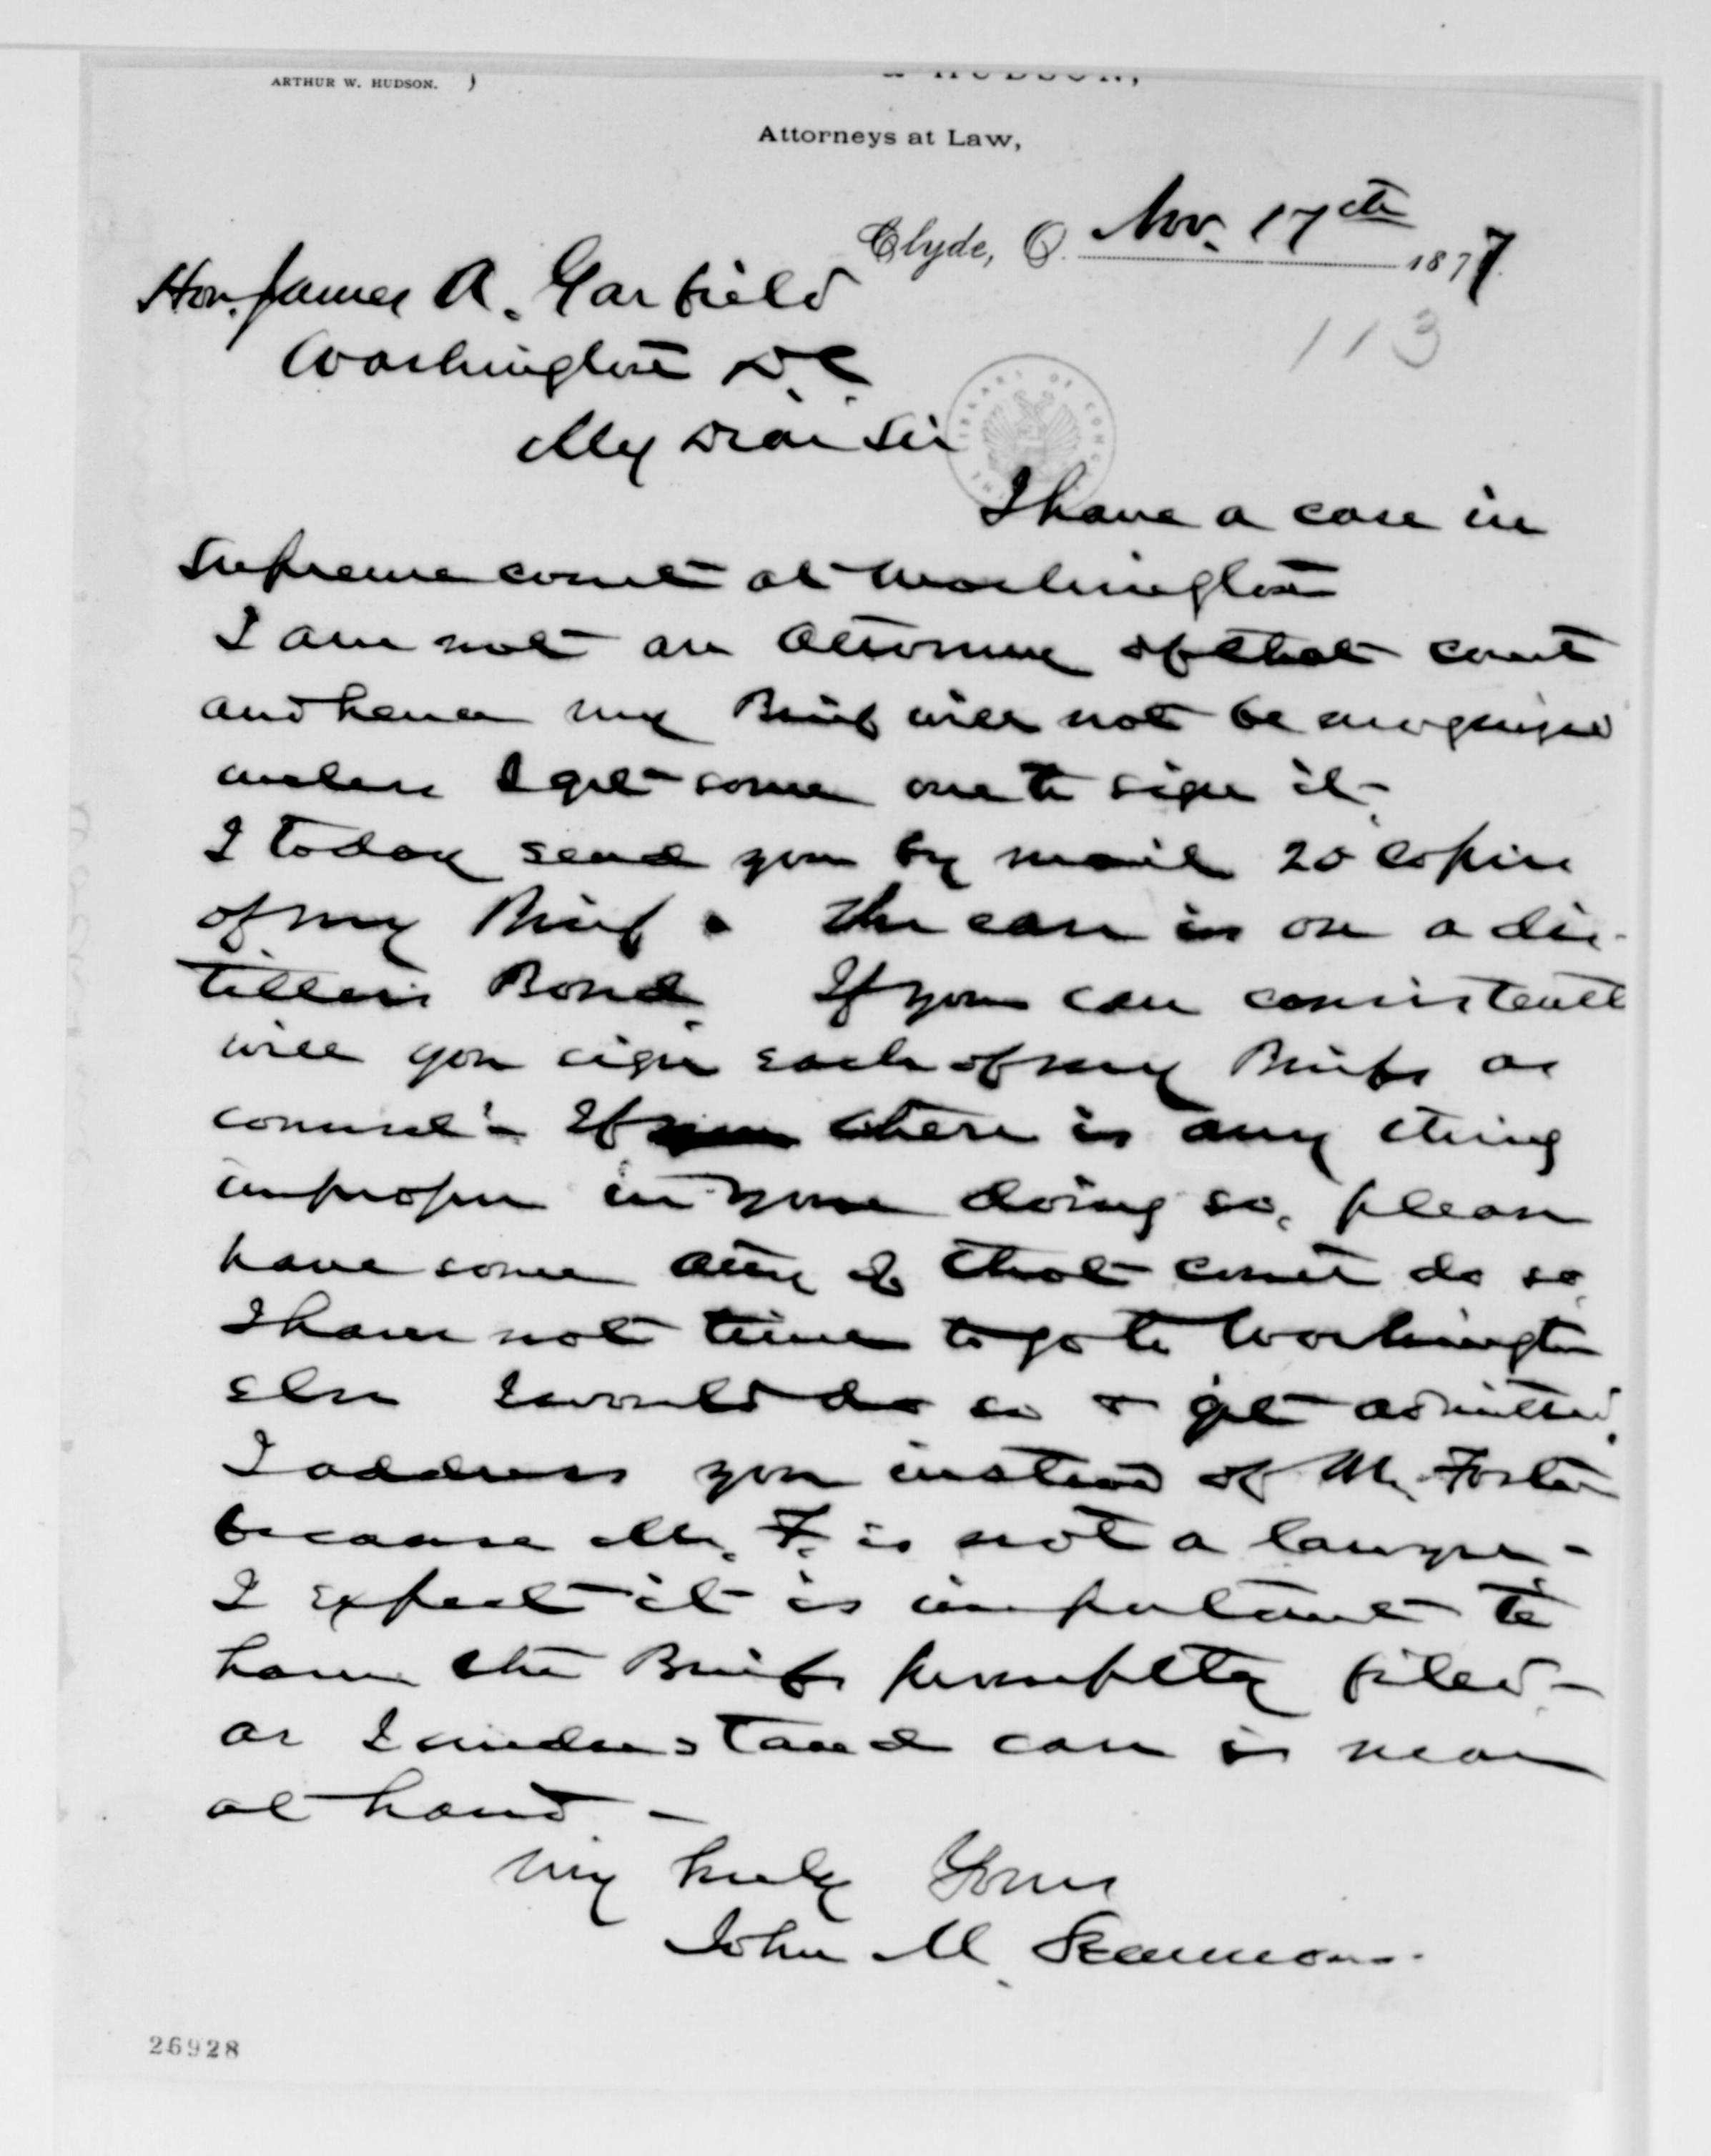 ARTHUR W. HUDSON. )
& HUDSON,
Attorneys at Law,
Clyde, O. Nov. 17th 1877.
Hon. James A. Garfield
113
Washington D.C.
My Dear Sir
THE LIBRARY OF CONGRESS
I have a case in
Supreme court at Washington
I am not an attorney of that court
and hence my Brief will not be recognized
unless I get some one to sign it-
I today send you by mail 20 copies
of my Brief. The case is on a dis-
tillers Bond. If you can consistently
will you sign each of my Briefs as
counsel - If there is any thing
improper in your doing so, please
have some atty of that court do so.
I have not time to go to Washington
else I would do so & get admitted.
I address you instead of Mr. Foster
because Mr. F. is not a lawyer -
I expect it is important to
have the Briefs promptly filed -
as I understand case is near
at hand -
Very truly Yours
John M. Lemmon.
26928